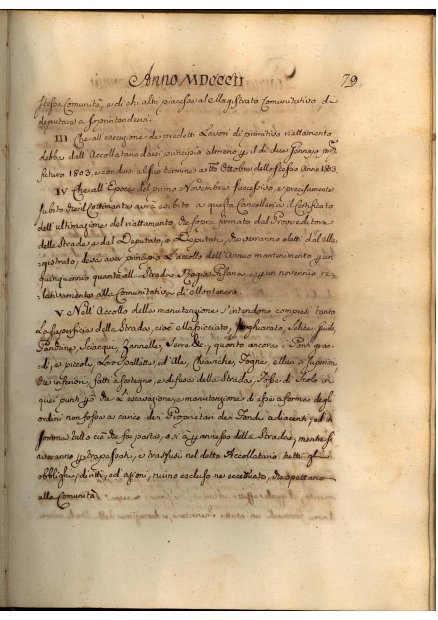 Anno MDCCCII 79
stessa Comunità, e di chi altri piacesse al Magistrato Comunitativo di
deputare a soprintendervi.
III Che all'esecuzione de predetti Lavori di primitivo riattamento
debba dall'Accollatario darsi principio almeno il dì dieci Gennajo
futuro 1803, e condursi al suo termine a tt.o Ottobre dello stesso Anno 1803.
IV Che all'Epoca del primo Novembre successivo, e precisamente
subito che il Cottimante avrà esibito a questa Cancelleria il Certificato
dell'ultimazione del riattamento, che sopra firmato dal Provveditore
delle Strade, e dal Deputato, o Deputati, che verranno eletti dal Ma-
gistrato, deva aver principio l'accollo dell'Annuo mantenimento p un
quinquennio quanto alla Strada Regia Pisana, e p un novennio re-
lativamente alla Comunitativa di Montenero.
V. Nell'Accollo della manutenzione s'intendono compresi tanto
la superficie della Strada, cioè Massicciato, Inghiarato, Selice,
Panchine, Sciacqui, Zannelle, Serre &c, quanto ancora i Ponti gran-
di, e piccoli, Loro Spallette, ed Ale, Chiaviche, Fogne, e Muri sì superiori
che inferiori, fatti a sostegno, e difesa della Strada, Fosse di Scolo in
quei punti p che la escavazione, e manutenzione di esse a forma degli
ordini non fosse a carico dei Proprietari dei Fondi adiacenti, ed in
somma tutto ciò che fa parte, o si à p annesso della Strada, mentre si
averanno p trapassati, e trasfusi nel detto Accollatario tutti gl'
obblighi, diritti, ed azioni, niuno escluso ne eccettuato, che spettano
alla Comunità